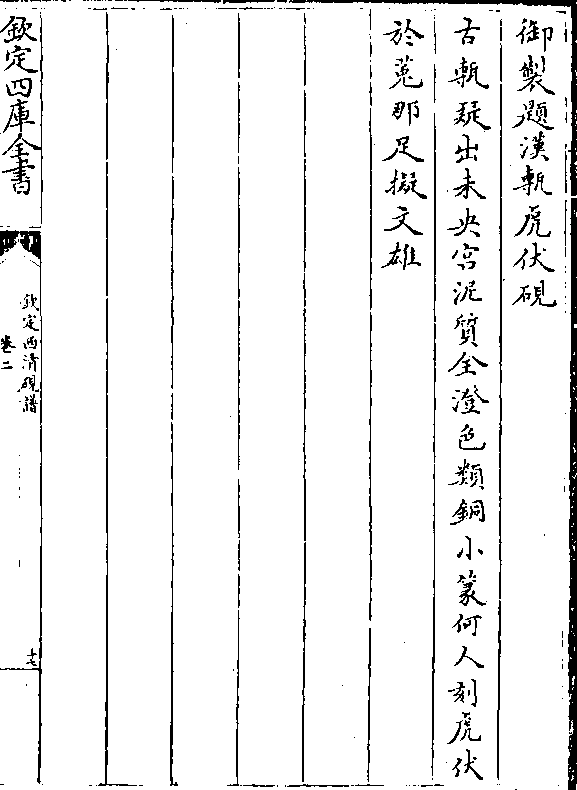 御製題漢瓴虎伏硯
古瓴疑出未央宫泥質全澄色類銅小篆何人刻虎伏
於菟那足擬文雄
欽定四庫全書
欽定西清硯譜
卷二
十七